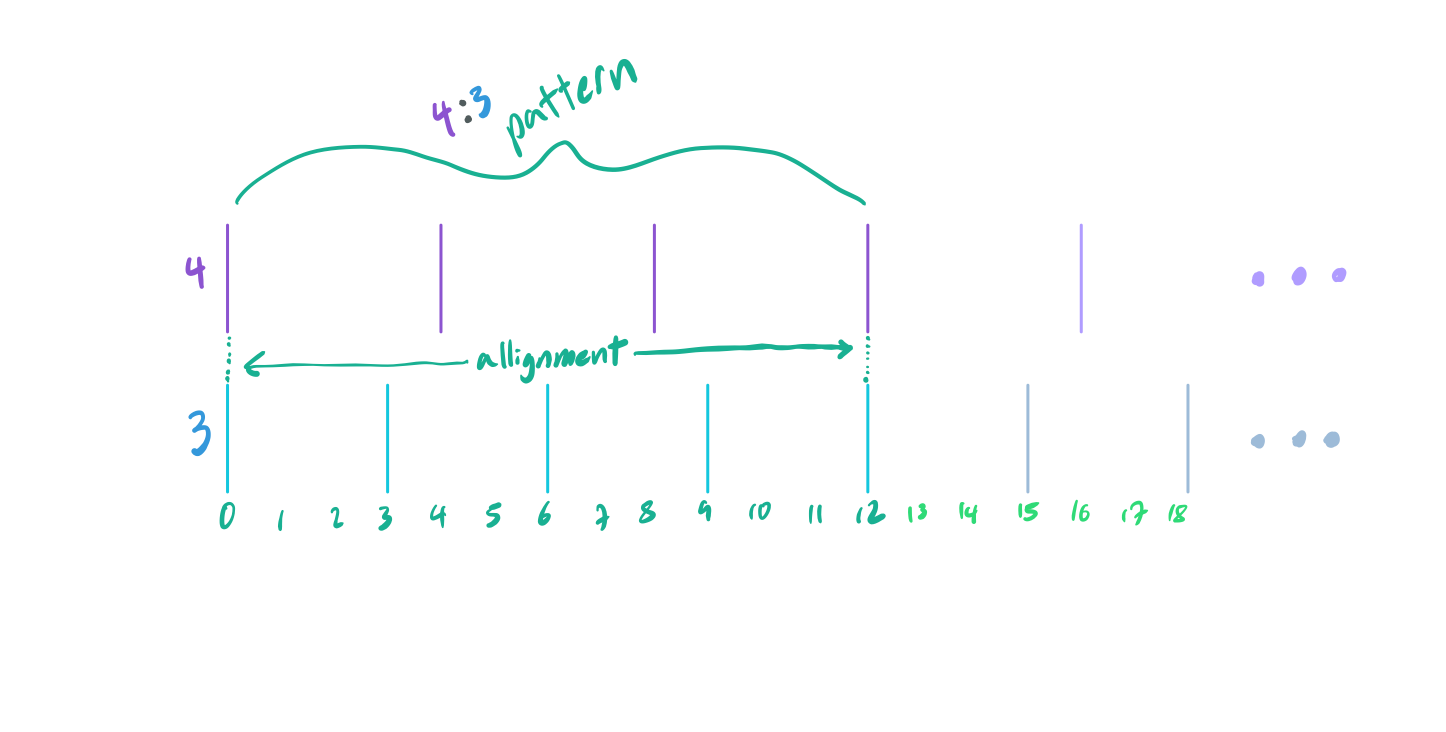 4:3 pattern
4
allignment
3
0 1 2 3 4 5 6 7 8 9 10 11 12 13 14 15 16 17 18